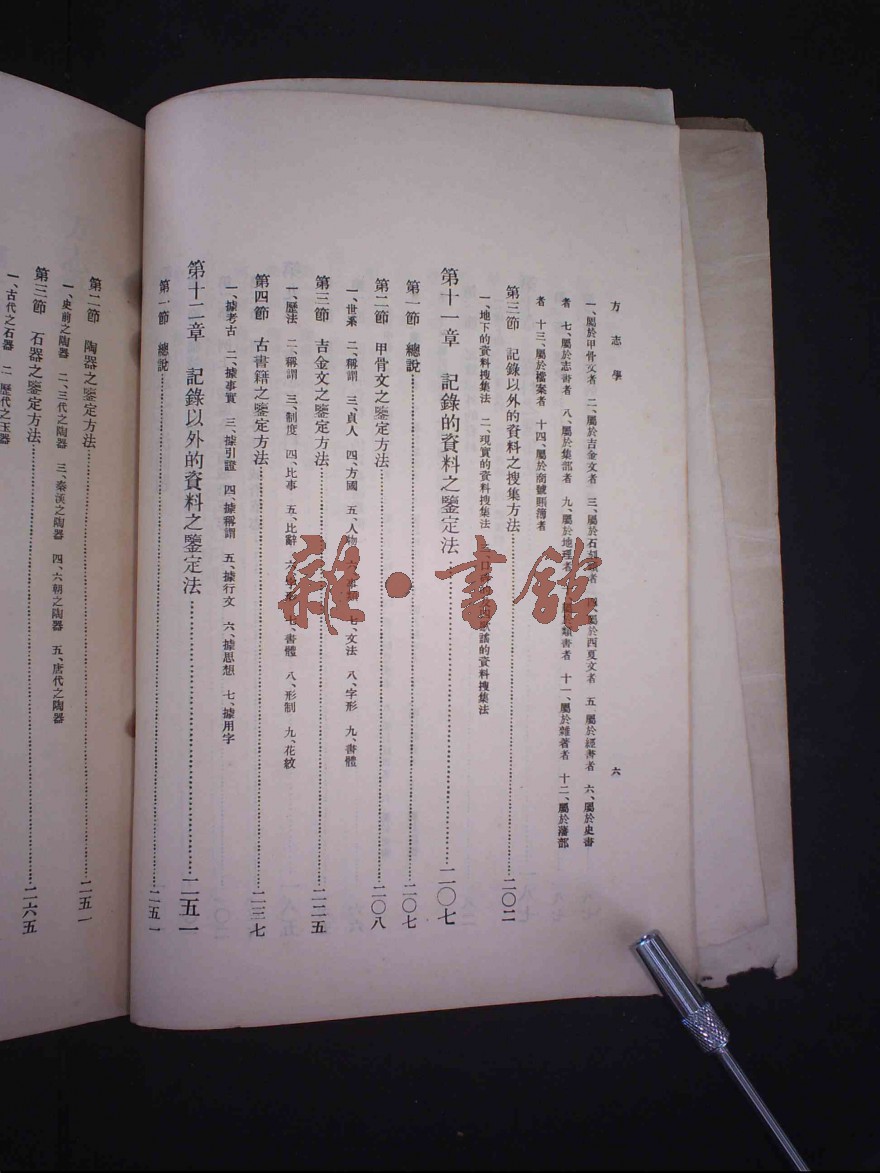 方志學
六
一、屬於甲骨文者 二、屬於吉金文者 三、屬於石刻者 四、屬於西夏文者 五、屬於經書者 六、屬於史書
者 七、屬於志書者 八、屬於集部者 九、屬於地理者 類書者 十一、屬於雜著者 十二、屬於藩部
者 十三、屬於檔案者 十四、屬於商號賬簿者
第三節 記錄以外的資料之搜集方法……二〇二
一、地下的資料搜集法 二、現實的資料搜集法 三、口 歌謠的資料搜集法
第十一章 記錄的資料之鑒定法……二〇七
第一節 總說……二〇七
第二節 甲骨文之鑒定方法……二〇八
一、世系 二、稱謂 三、貞人 四、方國 五、人物 六、 七、文法 八、字形 九、書體
第三節 吉金文之鑒定方法……二二五
一、歷法 二、稱謂 三、制度 四、比事 五、比辭 六、字形 七、書體 八、形制 九、花紋
第四節 古書籍之鑒定方法……二三七
一、據考古 二、據事實 三、據引證 四、據稱謂 五、據行文 六、據思想 七、據用字
第十二章 記錄以外的資料之鑒定法……二五一
第一節 總說……二五一
第二節 陶器之鑒定方法……二五一
一、史前之陶器 二、三代之陶器 三、秦漢之陶器 四、六朝之陶器 五、唐代之陶器
第三節 石器之鑒定方法……二六五
一、古代之石器 二、歷代之玉器
雜·書館